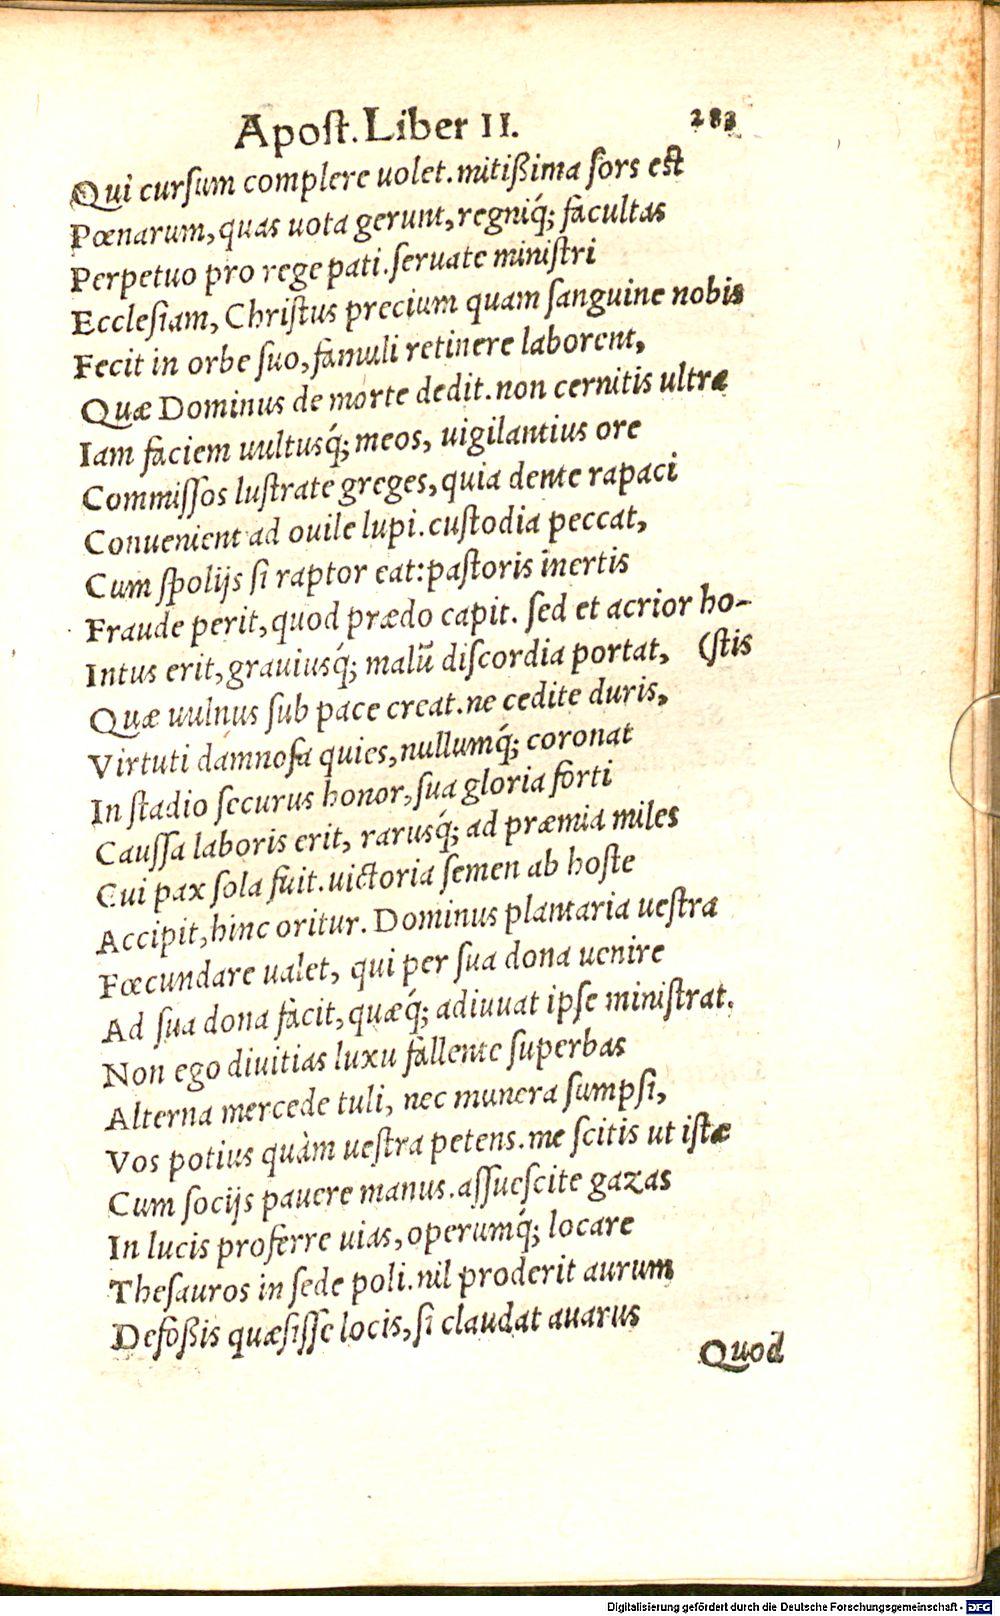 Apoſt. Liber II. 283
Qui curſum complere uolet. mitißima ſors eſt
Pœnarum, quas uota gerunt, regniq́; facultas
Perpetuo pro rege pati. ſeruate miniſtri
Eccleſiam, Chriſtus precium quam ſanguine nobis
Fecit in orbe ſuo, famuli retinere laborent,
Quæ Dominus de morte dedit. non cernitis ultra
Iam faciem uultusq́; meos, uigilantius ore
Commiſſos luſtrate greges, quia dente rapaci
Conuenient ad ouile lupi. cuſtodia peccat,
Cum ſpolijs ſi raptor eat: paſtoris inertis
Fraude perit, quod prædo capit. ſed et acrior ho-
Intus erit, grauiusq́; malũ diſcordia portat, (ſtis
Quæ uulnus ſub pace creat. ne cedite duris,
Virtuti damnoſa quies, nullumq́; coronat
In ſtadio ſecurus honor, ſua gloria forti
Cauſſa laboris erit, rarusq́; ad præmia miles
Cui pax ſola fuit. uictoria ſemen ab hoſte
Accipit, hinc oritur. Dominus plantaria ueſtra
Fœcundare ualet, qui per ſua dona uenire
Ad ſua dona facit, quæq́; adiuuat ipſe miniſtrat.
Non ego diuitias luxu fallente ſuperbas
Alterna mercede tuli, nec munera ſumpſi,
Vos potius quàm ueſtra petens. me ſcitis ut iſtæ
Cum ſocijs pauere manus. aſſueſcite gazas
In lucis proferre uias, operumq́; locare
Theſauros in ſede poli. nil proderit aurum
Defoßis quæſiſſe locis, ſi claudat auarus
Quod
Digitalisierung gefördert durch die Deutsche Forschungsgemeinschaft - DFG